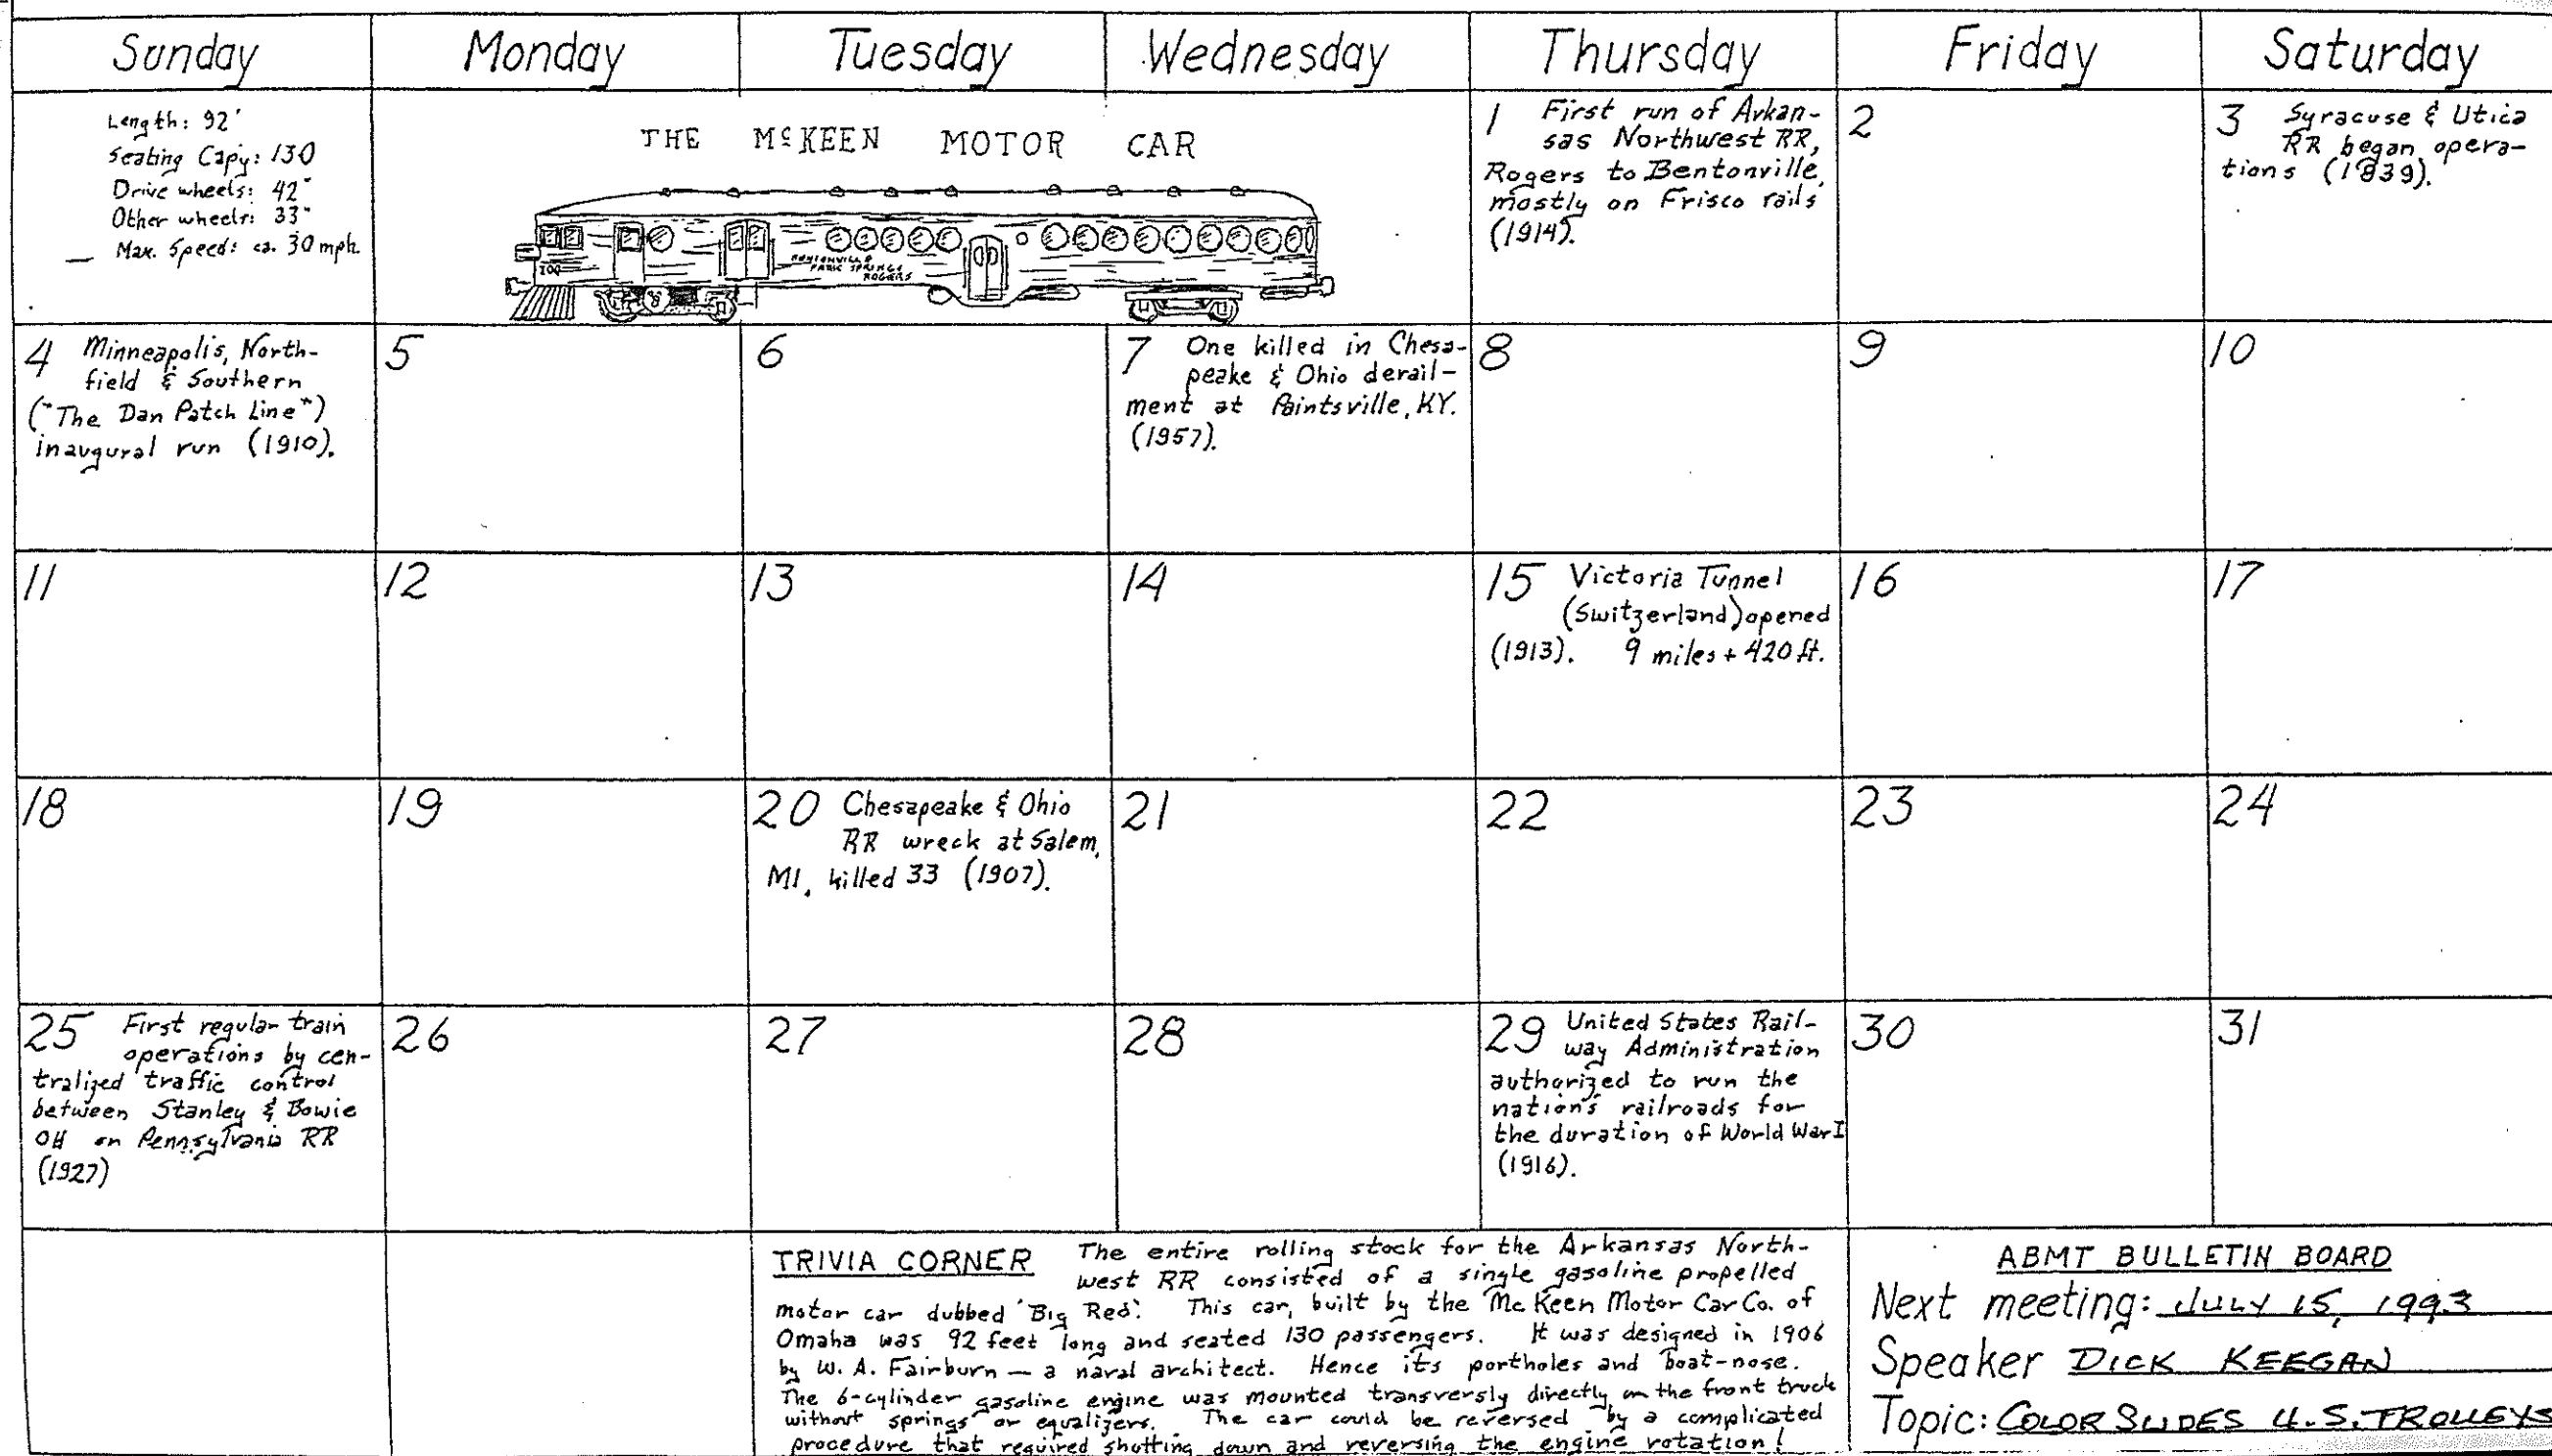 Sunday Monday Tuesday Wednesday Thursday Friday Saturday
Length: 92'
Seating Capy: 130
Drive wheels: 42"
Other wheels: 33"
Max. Speed: ca. 30 mph.
THE McKEEN MOTOR CAR
100
BENTONVILLE
PARK SPRINGS
ROGERS
1 First run of Arkan-
sas Northwest RR,
Rogers to Bentonville,
mostly on Frisco rails
(1914).
2
3 Syracuse & Utica
RR began opera-
tions (1839).
4 Minneapolis, North-
field & Southern
("The Dan Patch Line")
inaugural run (1910).
5
6
7 One killed in Chesa-
peake & Ohio derail-
ment at Paintsville, KY.
(1957).
8
9
10
11
12
13
14
15 Victoria Tunnel
(Switzerland) opened
(1913). 9 miles + 420 ft.
16
17
18
19
20 Chesapeake & Ohio
RR wreck at Salem,
MI, killed 33 (1907).
21
22
23
24
25 First regular train
operations by cen-
tralized traffic control
between Stanley & Bowie
OH on Pennsylvania RR
(1927)
26
27
28
29 United States Rail-
way Administration
authorized to run the
nation's railroads for
the duration of World War I
(1916).
30
31
TRIVIA CORNER The entire rolling stock for the Arkansas North-
west RR consisted of a single gasoline propelled
motor car dubbed 'Big Red'. This car, built by the McKeen Motor Car Co. of
Omaha was 92 feet long and seated 130 passengers. It was designed in 1906
by W. A. Fairburn — a naval architect. Hence its portholes and boat-nose.
The 6-cylinder gasoline engine was mounted transversly directly on the front truck
without springs or equalizers. The car could be reversed by a complicated
procedure that required shutting down and reversing the engine rotation!
ABMT BULLETIN BOARD
Next meeting: JULY 15, 1993
Speaker DICK KEEGAN
Topic: COLOR SLIDES U.S. TROLLEYS